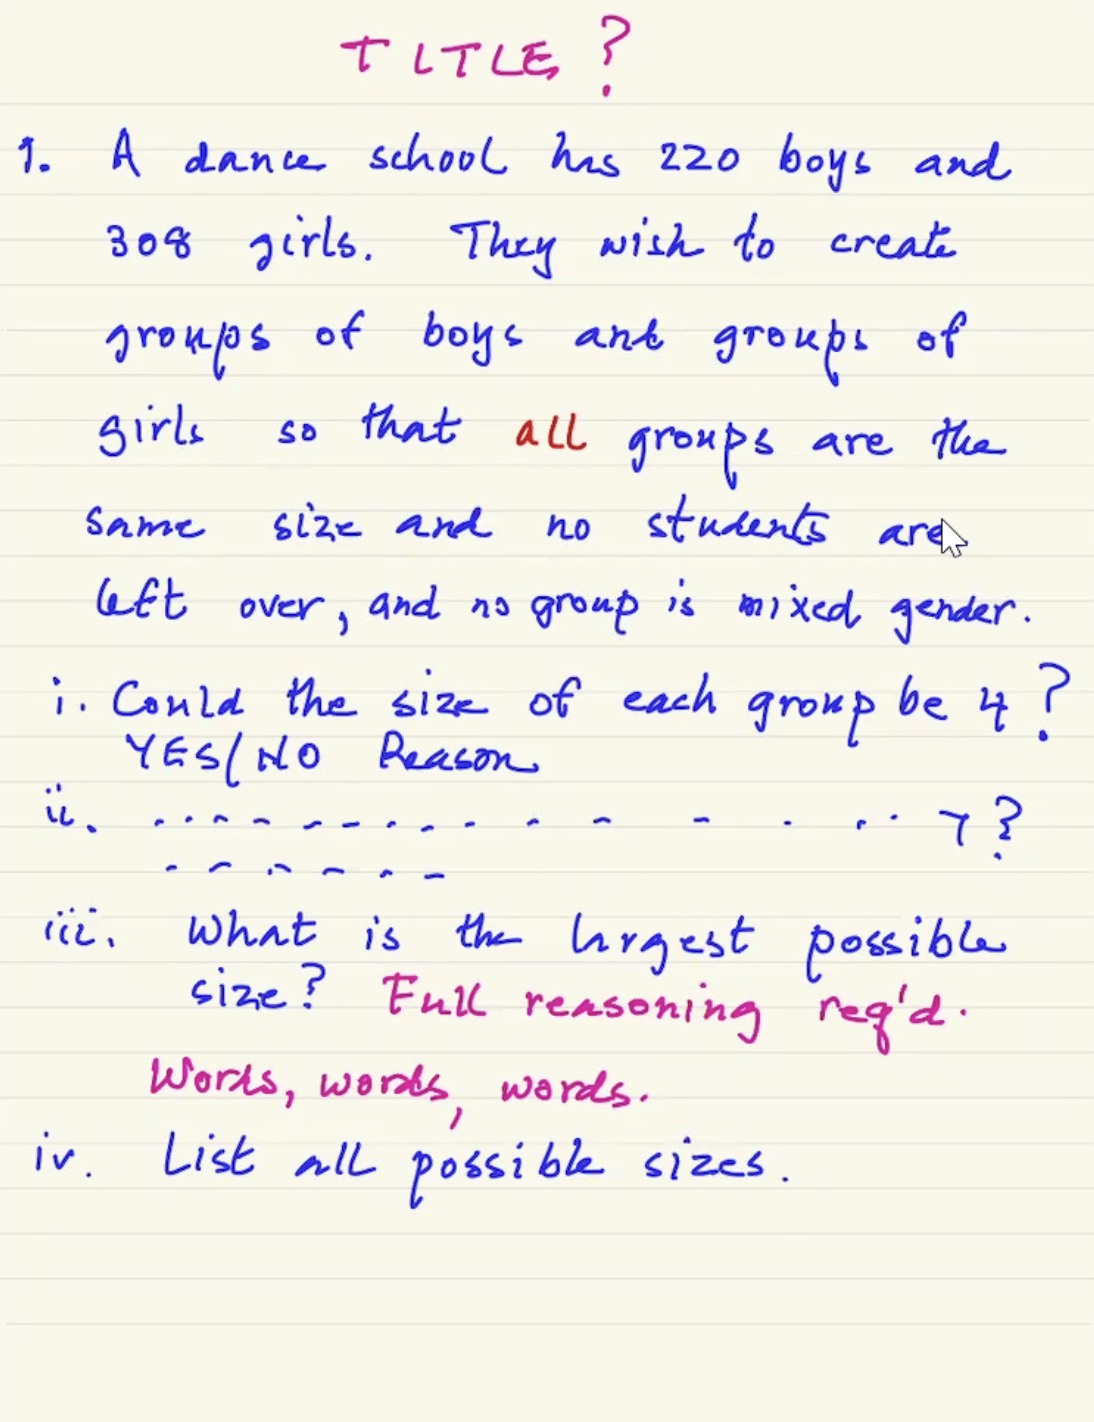 TITLE?
1. A dance school has 220 boys and
308 girls. They wish to create
groups of boys and groups of
girls so that all groups are the
same size and no students are
left over, and no group is mixed gender.
i. Could the size of each group be 4?
YES/NO Reason
ii. - - - - - - - - - - - - - - - 7?
- - - - - -
iii. What is the largest possible
size? Full reasoning req'd.
Words, words, words.
iv. List all possible sizes.